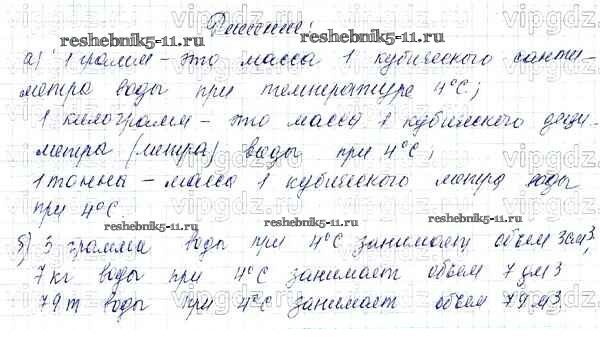 Решение:
а) 1 грамм – это масса 1 кубического санти-
метра воды при температуре 4°С;
1 килограмм – это масса 1 кубического деци-
метра (литра) воды при 4°С;
1 тонна – масса 1 кубического метра воды
при 4°С
б) 3 грамма воды при 4°С занимает объем 3см³,
7 кг воды при 4°С занимает объем 7 дм3
79 т воды при 4°С занимает объем 79 м3
reshebnik5-11.ru
reshebnik5-11.ru
reshebnik5-11.ru
reshebnik5-11.ru
vipgdz.com